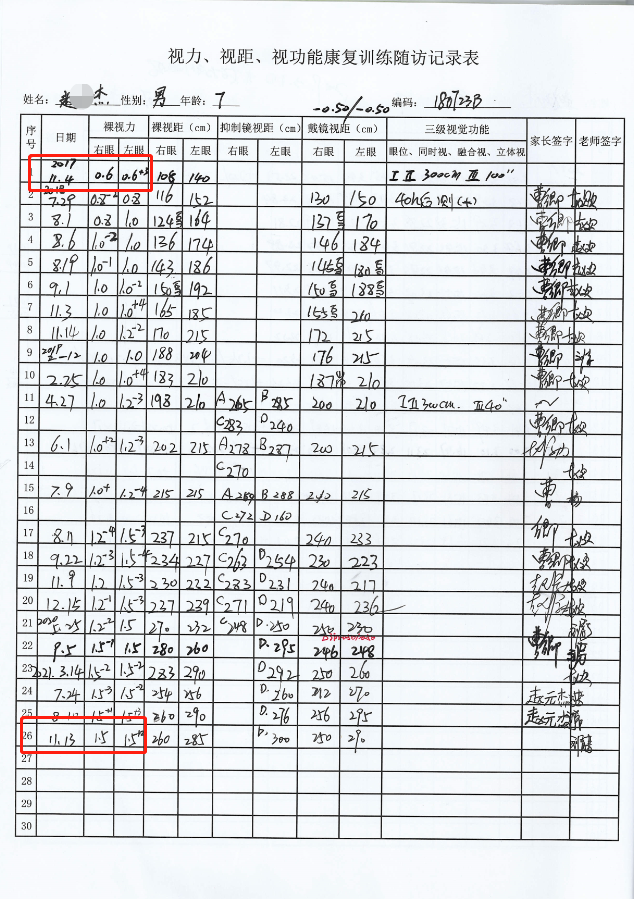 视力、视距、视功能康复训练随访记录表
姓名: 杰 性别: 男 年龄: 7 -0.50/-0.50 编码: 180723B
序号 日期 裸视力 裸视距(cm) 抑制镜视距(cm) 戴镜视距(cm) 三级视觉功能 家长签字 老师签字
右眼 左眼 右眼 左眼 右眼 左眼 右眼 左眼 眼位、同时视、融合视、立体视
1 2017 11.4 0.6 0.6+3 108 140 I II 300cm III 100"
2 2018 7.29 0.8-2 0.8 116 152 130 150
3 8.1 0.8 1.0 124 164 137 170
4 8.6 1.0-2 1.0 136 174 146 184
5 8.19 1.0-1 1.0 143 186 145 180
6 9.1 1.0 1.0-2 150 192 150 188
7 11.3 1.0 1.0+4 165 185 155 210
8 11.14 1.0 1.2-2 170 215 172 215
9 2019 1.0 1.0 188 204 176 215
10 2.25 1.0 1.0+4 183 210 187 210
11 4.27 1.0 1.2-3 198 210 A265 B285 200 210 I II 300cm. III 40"
12 C283 D240
13 6.1 1.0+2 1.2-3 202 215 A278 B287 200 215
14 C270
15 7.9 1.0+ 1.2-4 215 215 B288 240 215
16 C272 D160
17 1.2-4 1.5-3 237 215 C270 240 233
18 9.22 1.2-3 1.5-4 234 227 C263 D254 230 223
19 11.9 1.2 1.5-3 230 232 C283 D231 240 217
20 12.15 1.2-1 1.5-3 237 239 C271 D219 240 236
21 2020 5.25 1.2-2 1.5 270 232 C248 D.250 250 230
22 9.5 1.5-1 1.5 280 260 D.295 246 248
23 2021.3.14 1.5-2 1.5-2 283 290 D292 250 260
24 7.24 1.5-3 1.5-2 254 256 D.260 212 270 赵元杰
25 260 290 D.276 256 295 赵元杰
26 11.13 1.5 1.5 260 285 D.300 250 290
27
28
29
30